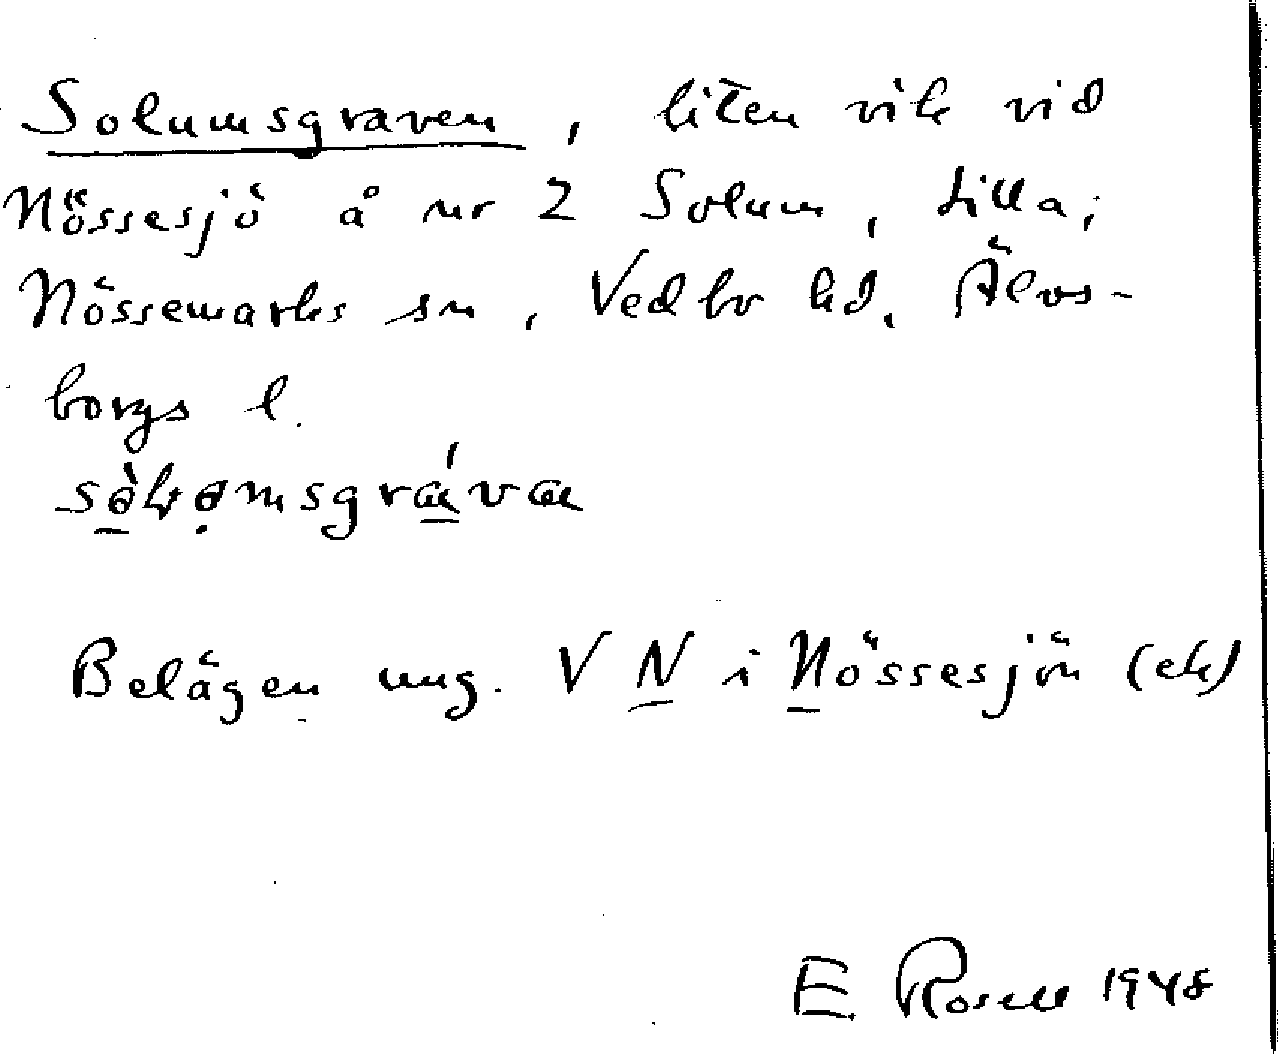 Solumsgraven, liten vik vid
Nössesjö å nr 2 Solum, Lilla,
Nössemarks sn, Vedbo hd. Älvs-
borgs l.
Belägen ung. V N i Nössesjön (ek)
E Rosell 1948